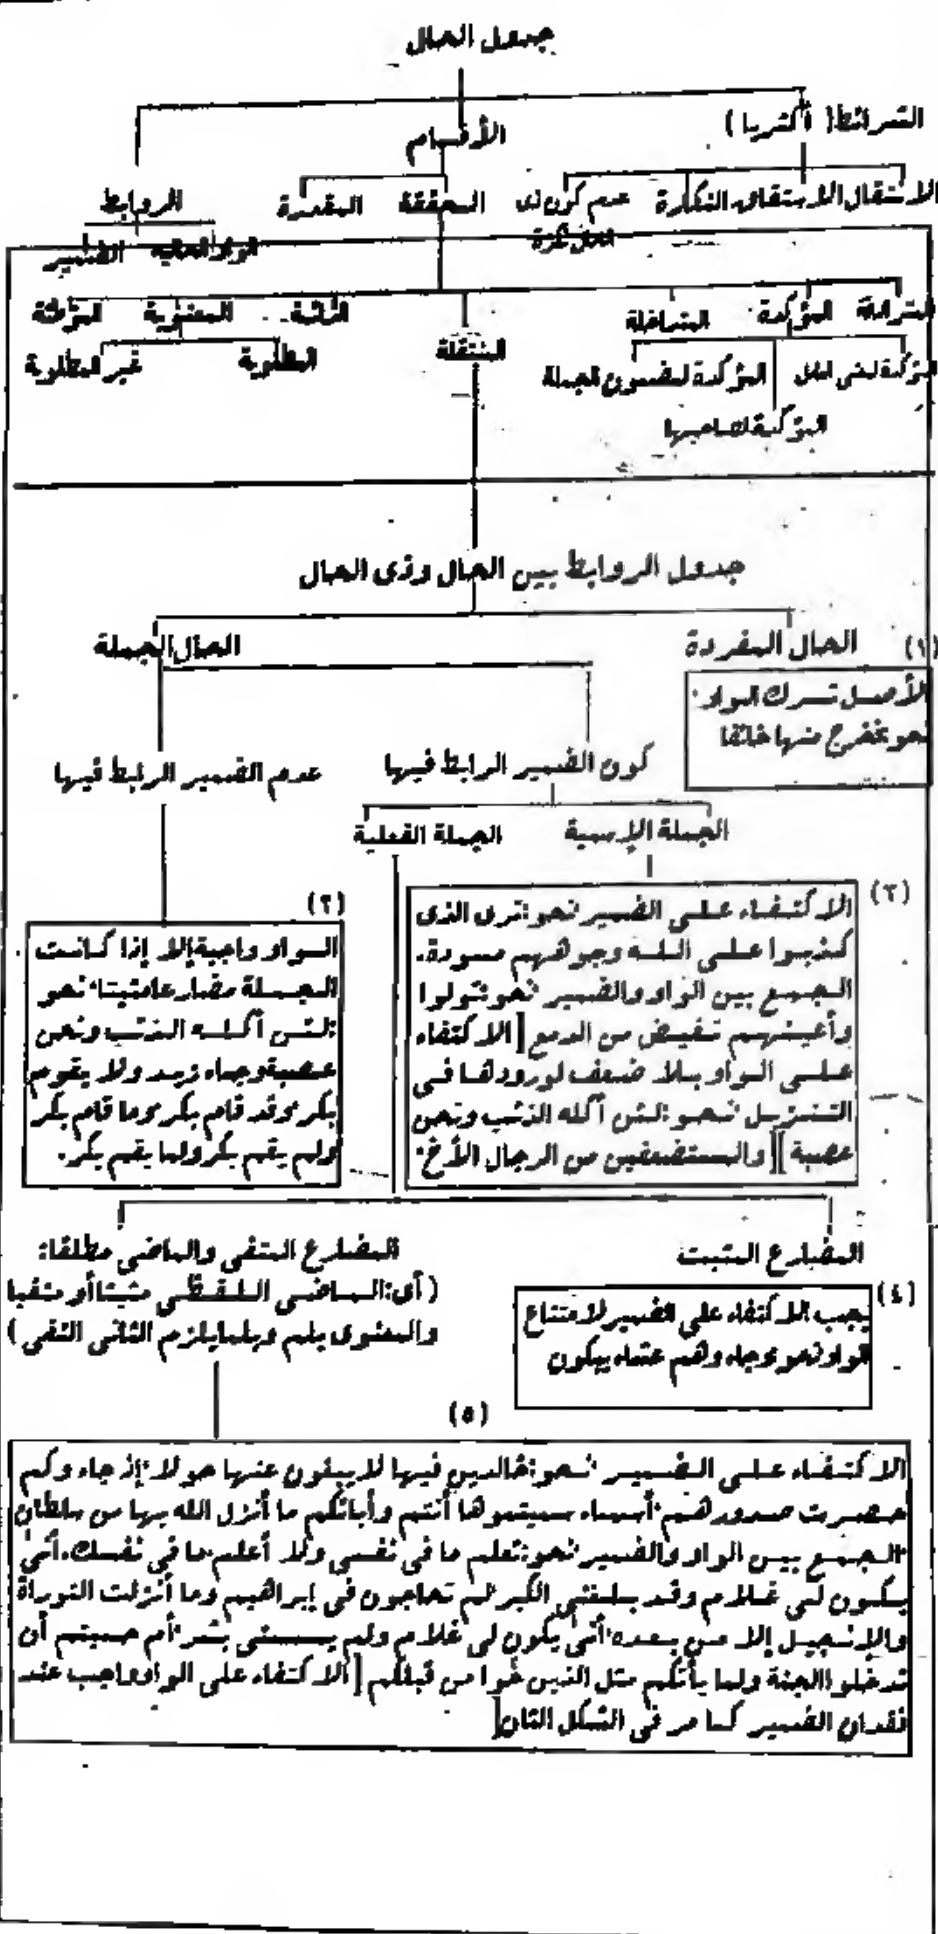 جدول الحال
الشرائط ( أكثريا )
الأقسام
الروابط
الانتقال الاشتقاق النكارة عدم كون ذى الحال نكرة
المحققة المقدرة
الواو الحالية الضمير
المترادفة المؤكدة المتداخلة المنتقلة الثابتة المعنوية الموطئة
المؤكدة لصاحبها
المؤكدة لمضمون الجملة
المطلوبة غير المطلوبة
جدول الروابط بين الحال وذى الحال
(١) الحال المفردة
الحال الجملة
الأصل ترك الواو
نحو فخرج منها خائفا
كون الضمير الرابط فيها
عدم الضمير الرابط فيها
الجملة الإسمية
الجملة الفعلية
(٣)
الاكتفاء على الضمير نحو: ترى الذى
كذبوا على الله وجوههم مسودة.
الجمع بين الواو والضمير نحو: تولوا
وأعينهم تفيض من الدمع [ الاكتفاء
على الواو بلا ضعف لورودها فى
التنزيل نحو: لئن أكله الذئب ونحن
عصبة ][ والمستضعفين من الرجال الأخ
(٢)
الواو واجبة إلا إذا كانت
الجملة مضارعا مثبتا نحو
: لئن أكله الذئب ونحن
عصبة وجاء زيد ولا يقوم
بكر وقد قام بكر وما قام بكر
ولم يقم بكر ولما يقم بكر.
المضارع المثبت
(٤)
يجب الاكتفاء على الضمير لامتناع
الواو نحو: وجاءوهم عشاء يبكون
المضارع المنفى والماضى مطلقا:
( أى: الماضى اللفظى مثبتا أو منفيا
والمعنوى بلم وبلما يلزم الثانى النفى )
(٥)
الاكتفاء على الضمير نحو: خالدين فيها لا يبغون عنها حولا إذ جاءوكم
حصرت صدورهم أسماء سميتموها أنتم وأباتكم ما أنزل الله بها من سلطان
الجمع بين الواو والضمير نحو: تعلم ما فى نفسى ولا أعلم ما فى نفسك. أنى
يكون لى غلام وقد بلغنى الكبر لم تحاجون فى إبراهيم وما أنزلت التوراة
والإنجيل إلا من بعده أنى يكون لى غلام ولم يمسسنى بشر أم حسبتم أن
تدخلوا الجنة ولما يأتكم مثل الذين خلوا من قبلكم [ الاكتفاء على الواو واجب عند
فقدان الضمير كما مر فى الشكل الثان[